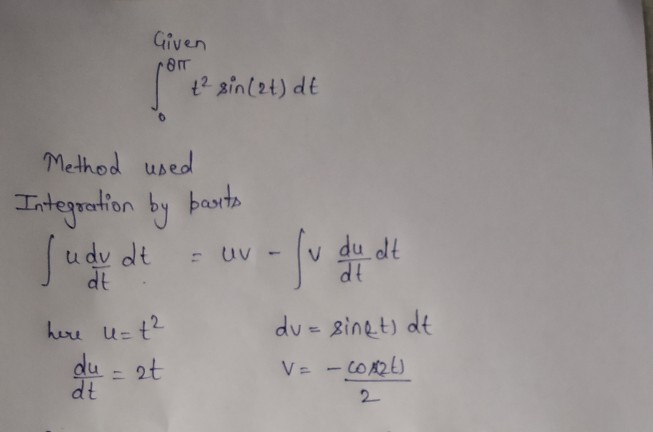 Given
∫₀^{8π} t² sin(2t) dt
Method used
Integration by parts
∫ u dv/dt dt = uv - ∫ v du/dt dt
here u = t² dv = sin(2t) dt
du/dt = 2t v = - cos(2t)/2